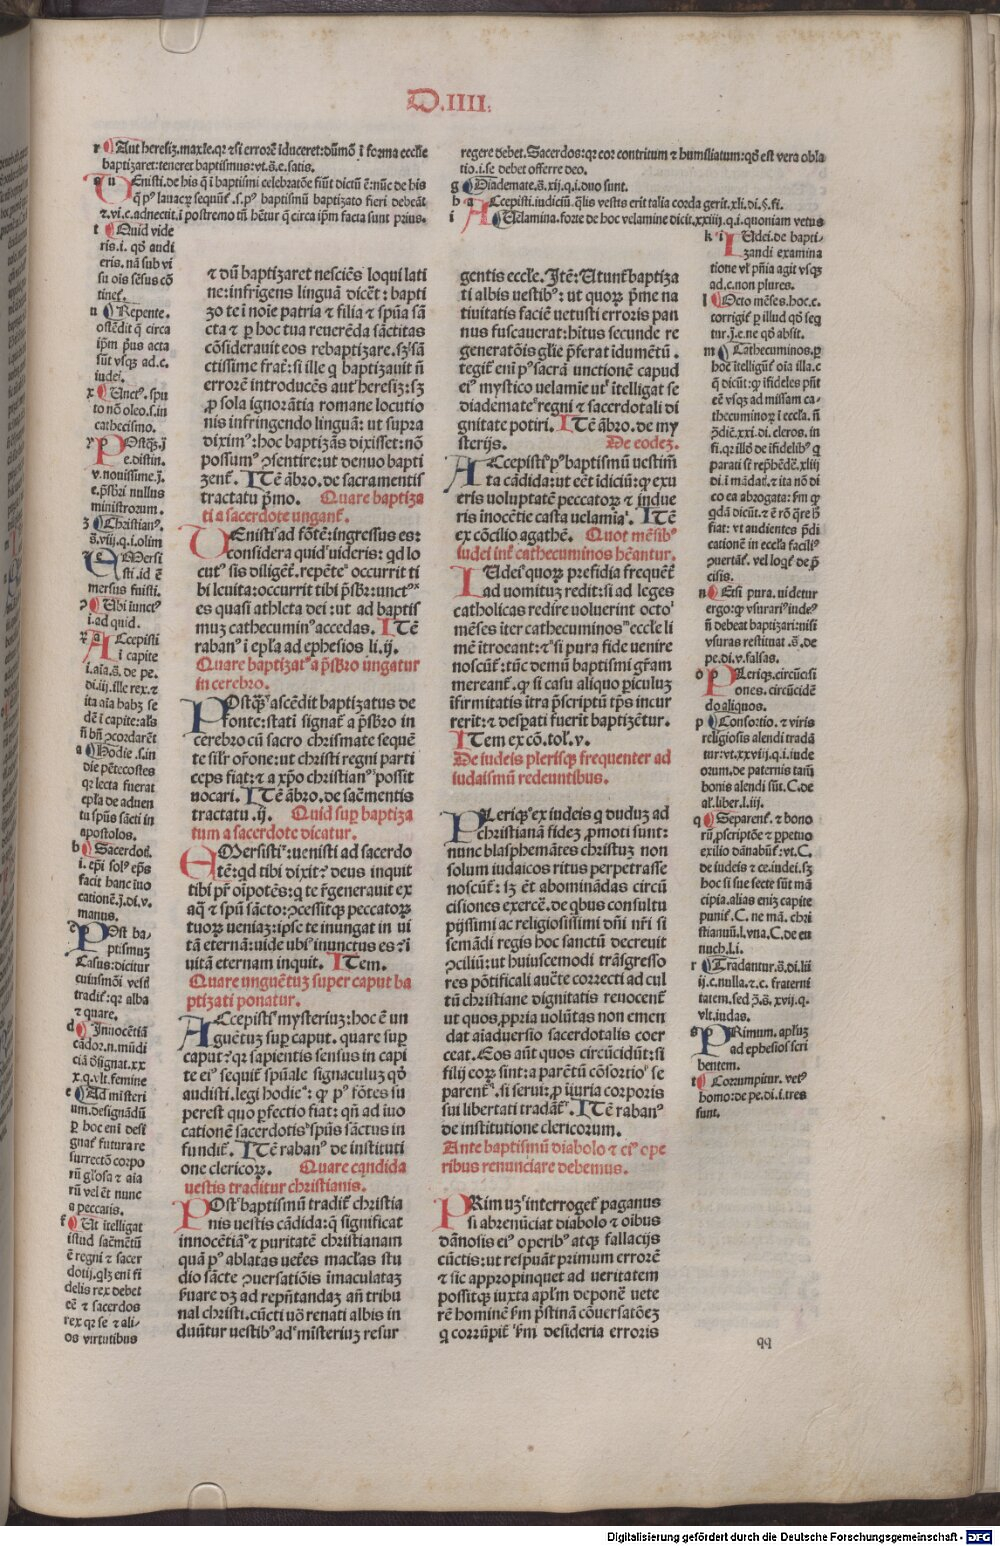 D.IIII.
r Aut heresiz.maxie.qr ⁊ si errorē iduceret:dūmō ī forma ecclie
baptizaret:teneret baptismus:vt.s.e.satis.
s u Enisti.de his q̄ ī baptismi celebratōe fiūt dictū ē:nūc de his
q̄ pꝰ lauacrꝝ sequūt᷑.s.pꝰ baptismū baptizato fieri debeāt
⁊.vi.c.adnectit.i postremo tn̄ hēt᷑ur q̄ circa ip̄m facta sunt prius.
t Quid vide
ris.i. qd̄ audi
eris. nā sub vi
su oīs sēsus cō
tinet᷑.
u Repente.
ostēdit q̄ circa
ip̄m p̄us acta
sūt vsqꝫ ad.c.
iudei.
x Unctꝰ. spu
to nō oleo.s.in
cathecismo.
y Postqꝫ.j.
e.distin.
v.nouissime.j.
e.p̄sbri nullus
ministrorum.
z Christianꝰ.
s.viij.q.i.olim
⁊ Mersi
sti.id ē
mersus fuisti.
Ubi iunctꝰ
i.ad quid.
a Ccepisti
i capite
i.aīa.s. de pe.
di.iij.ille rex.⁊
ita aīa habꝫ se
dē i capite:al̄s
n̄ bn̄ ꝯcordarēt
a Hodie .s.in
die pētecostes
qr lecta fuerat
ep̄la de aduen
tu sp̄us sācti in
apostolos.
b Sacerdos.
i. ep̄i solꝰ ep̄s
facit hanc inuo
cationē.j.di.v.
manus.
c Post ba-
ptismuꝫ
Casus:dicitur
cuiusmōi vesti
tradit᷑:qr alba
⁊ quare.
d Innocētiā
cādor.n.mūdi
ciā dsignat.xx
x.q.vlt.femine
e Ad misteri
um.designādū
ꝑ hoc eni desi
gnat᷑ futura re
surrectō corpo
rū gl̄osa ⁊ aīa
rū vel ēt nunc
a peccatis.
f Ut itelligat
istud sacm̄tū
ē regni ⁊ sacer
dotij.qlꝫ eni fi
delis rex debet
eē ⁊ sacerdos
rex qr se ⁊ ali-
os virtutibus
⁊ dū baptizaret nesciēs loqui lati
ne:infrigens linguā dicēt : bapti
zo te i noīe patria ⁊ filia ⁊ sp̄ūa sā
cta ⁊ ꝑ hoc tua reuerēda sāctitas
cōsiderauit eos rebaptizare.sꝫ sā
ctissime frat᷑:si ille q baptizauit n̄
errorē introducēs aut heresiz:sꝫ
ꝓ sola ignorātia romane locutio
nis infringendo linguā: ut supra
diximꝰ:hoc baptizās dixisset:nō
possumꝰ ꝯsentire:ut denuo bapti
zent᷑. ITē ābro.de sacramentis
tractatu p̄mo. Quare baptiza
ti a sacerdote ungant᷑.
UEnisti ad fōtē:ingressus es:
considera quid uideris: qd lo
cutꝰ sis diligēt᷑.repēte occurrit ti
bi leuita:occurrit tibi p̄sbr:unctꝰ
es quasi athleta dei :ut ad baptis
muꝫ cathecuminꝰ accedas. ITē
rabanꝰ i ep̄la ad ephesios li.ij.
Quare baptizatꝰ a p̄sbro ungatur
in cerebro.
POstqꝫ ascēdit baptizatus de
fonte:stati signat᷑ a p̄sbro in
cerebro cū sacro chrismate sequē
te sil̄r or̄one:ut christi regni parti
ceps fiat:⁊ a xp̄o christianꝰ possit
uocari. ITē ābro.de sac̄mentis
tractatu .ij. Quid suꝑ baptiza
tum a sacerdote dicatur.
EMersisti:uenisti ad sacerdo
tē:qd tibi dixit? deus inquit
tibi pr̄ oīpotēs:q te r̄generauit ex
aq̄ ⁊ sp̄ū sācto:ꝯcessitqꝫ peccatorꝝ
tuorꝝ ueniaꝫ:ip̄se te inungat in ui
tā eternā:uide ubi inunctus es?i
uitā eternam inquit. ITem.
Quare unguētuꝫ super caput ba
ptizati ponatur.
ACcepisti mysteriuꝫ:hoc ē un
guētuꝫ suꝑ caput. quare suꝑ
caput?qr sapientis sensus in capi
te eiꝰ sequit᷑ sp̄uāle signaculuꝫ qd̄
audisti.legi hodie: qꝛ pꝰ fōtes su
perest quo ꝑfectio fiat: qn̄ ad iuo
cationē sacerdotis sp̄ūs sāctus in
fundit᷑. ITē rabanꝰ de instituti
one clericorꝝ. Quare candida
uestis traditur christianis.
POst baptismū tradit᷑ christia
nis uestis cādida:q̄ significat
innocētiā ⁊ puritatē christianam
quā pꝰ ablatas uet̄es mac̄las stu
dio sācte ꝯuersatiōis īmaculataꝫ
ẜuare dꝫ ad rep̄ntandaꝫ an̄ tribu
nal christi.cūcti uō renati albis in
duūtur uestibꝰ ad misteriuꝫ resur
regere debet.Sacerdos:qr cor contritum ⁊ humiliatum:qd̄ est vera obla
tio.i.se debet offerre deo.
g Diademate.s.xij.q.i.duo sunt.
h a Ccepisti.iudiciū.q̄lis vestis erit talia corda gerit.xli.di.§.fi.
i Uelamina.forte de hoc velamine dicit.xxiiij.q.i.quoniam vetus
gentis eccl̄e.Itē:Utunt᷑ baptiza
ti albis uestibꝰ: ut quorꝝ p̄me na
tiuitatis faciē uetusti erroris pan
nus fuscauerat:hītus secunde re
generatōis gl̄ie p̄ferat īdumētū .
tegit᷑ eni pꝰ sacrā unctionē capud
eiꝰ mystico uelamie ut itelligat se
diademate regni ⁊ sacerdotali di
gnitate potiri. ITē ābro.de my
sterijs. De eodeꝫ.
ACcepisti pꝰ baptismū uestim̄
ta cādida:ut eēt īdiciū:qꝛ exu
eris uoluptatē peccatorꝝ ⁊ indue
ris inocētie casta uelamia. ITē
ex cōcilio agathē. Quot mēsibꝰ
iudei int᷑ cathecuminos hēantur.
IUdei quorꝝ ꝑfidia frequēt᷑
ad uomituꝫ redit:si ad leges
catholicas redire uoluerint octo
mēses iter cathecuminos eccl̄e li
mē itroeant:⁊ si pura fide uenire
noscūt᷑:tūc demū baptismi gr̄am
mereant᷑.qꝛ si casu aliquo ꝑiculuꝫ
ifirmitatis itra p̄scriptū tp̄s incur
rerit:⁊ desꝑati fuerit baptizētur.
ITem ex cō.tol.v.
De iudeis plerisqꝫ frequenter ad
iudaismū redeuntibus.
PLeriqꝫ ex iudeis q duduꝫ ad
christianā fideꝫ ꝓmoti sunt:
nunc blasphemātes christuꝫ non
solum iudaicos ritus perpetrasse
noscūt᷑: sꝫ ēt abominādas circū
cisiones exercē.de qbus consultu
pijssimi ac religiosissimi dn̄i nr̄i si
semādi regis hoc sanctū decreuit
ꝯciliū:ut huiuscemodi trāsgresso
res pōtificali auc̄te correcti ad cul
tū christiane dignitatis reuocent᷑
ut quos ꝓpria uolūtas non emen
dat aīaduersio sacerdotalis coer
ceat.Eos aūt quos circūcidūt:si
filij eorꝝ sint:a parētū cōsortio se
parent᷑.si serui:ꝓ iiuria corporis
sui libertati tradāt᷑. ITē rabanꝰ
de institutione clericorum.
Ante baptismū diabolo ⁊ eiꝰ ope
ribus renunciare debemus.
PRimuꝫ interroget᷑ paganus
si abrenūciat diabolo ⁊ oībus
dānosis eiꝰ operibꝰ atqꝫ fallacijs
cūctis:ut respuāt primum errorē
⁊ sic appropinquet ad ueritatem
possitqꝫ iuxta apl̄m deponē uete
rē hominē ẜm p̄stinā cōuersatōeꝫ
q corrūpit᷑ ẜm desideria erroris
k i Udei.de bapti-
zandi examina
tione vl̓ pn̄ia agit vsqꝫ
ad.c.non plures.
l Octo mēses.hoc.c.
corrigit᷑ ꝑ illud qd̄ seq
tur.j.e.ne qd̄ absit.
m Cathecuminos.ꝑ
hoc itelligūt᷑ oīa illa.c
q̄ dicūt:qꝛ ifideles pn̄t
eē vsqꝫ ad missam ca-
thecuminorꝝ i eccl̄a. n̄
p̄dic̄.xxi.di.cleros. in
fi.qr illd̄ de ifidelibꝰ q
parati st̄ rep̄hēdē.xliij
di.i mādat᷑.⁊ ita nō di
co ea abrogata:ẜm qꝛ
qdā dicūt.⁊ ē rō q̄re h̄
fiat: vt audientes p̄di
cationē in eccl̄a faciliꝰ
ꝯuertāt᷑.vel loqt᷑ de p̄
cisis.
n Etsi pura.uidetur
ergo:qꝛ vsurariꝰ iudeꝰ
n̄ debeat baptizari:nisi
vsuras restituat .s.de
pe.di.v.falsas.
o p Leriqꝫ.circūcisi
ones.circūcidē
do aliquos.
p Consortio.⁊ viris
religiosis alendi tradā
tur:vt.xxviij.q.i.iude
orum.de paternis tam̄
bonis alendi sūt.C.de
al̓.liber.l.iij.
q Separent᷑.⁊ bono
rū ꝓscriptōe ⁊ ꝑpetuo
exilio dānabūt᷑:vt.C.
de iudeis ⁊ ce.iudei.sꝫ
hoc si sue secte sūt mā
cipia.alias enī capite
punit᷑.C. ne mā. chri
stianū.l.vna.C.de eu
nuch.l.i.
r Tradantur.s.di.lii
ij.c.nulla.⁊.c. fraterni
tatem.sed ꝯ̄.s.xvij.q.
vlt.iudas.
s PRimum. apl̄uꝫ
ad ephesios scri
bentem.
t Corrumpitur. vetꝰ
homo:de pe.di.i.tres
sunt.
qq
Digitalisierung gefördert durch die Deutsche Forschungsgemeinschaft - DFG